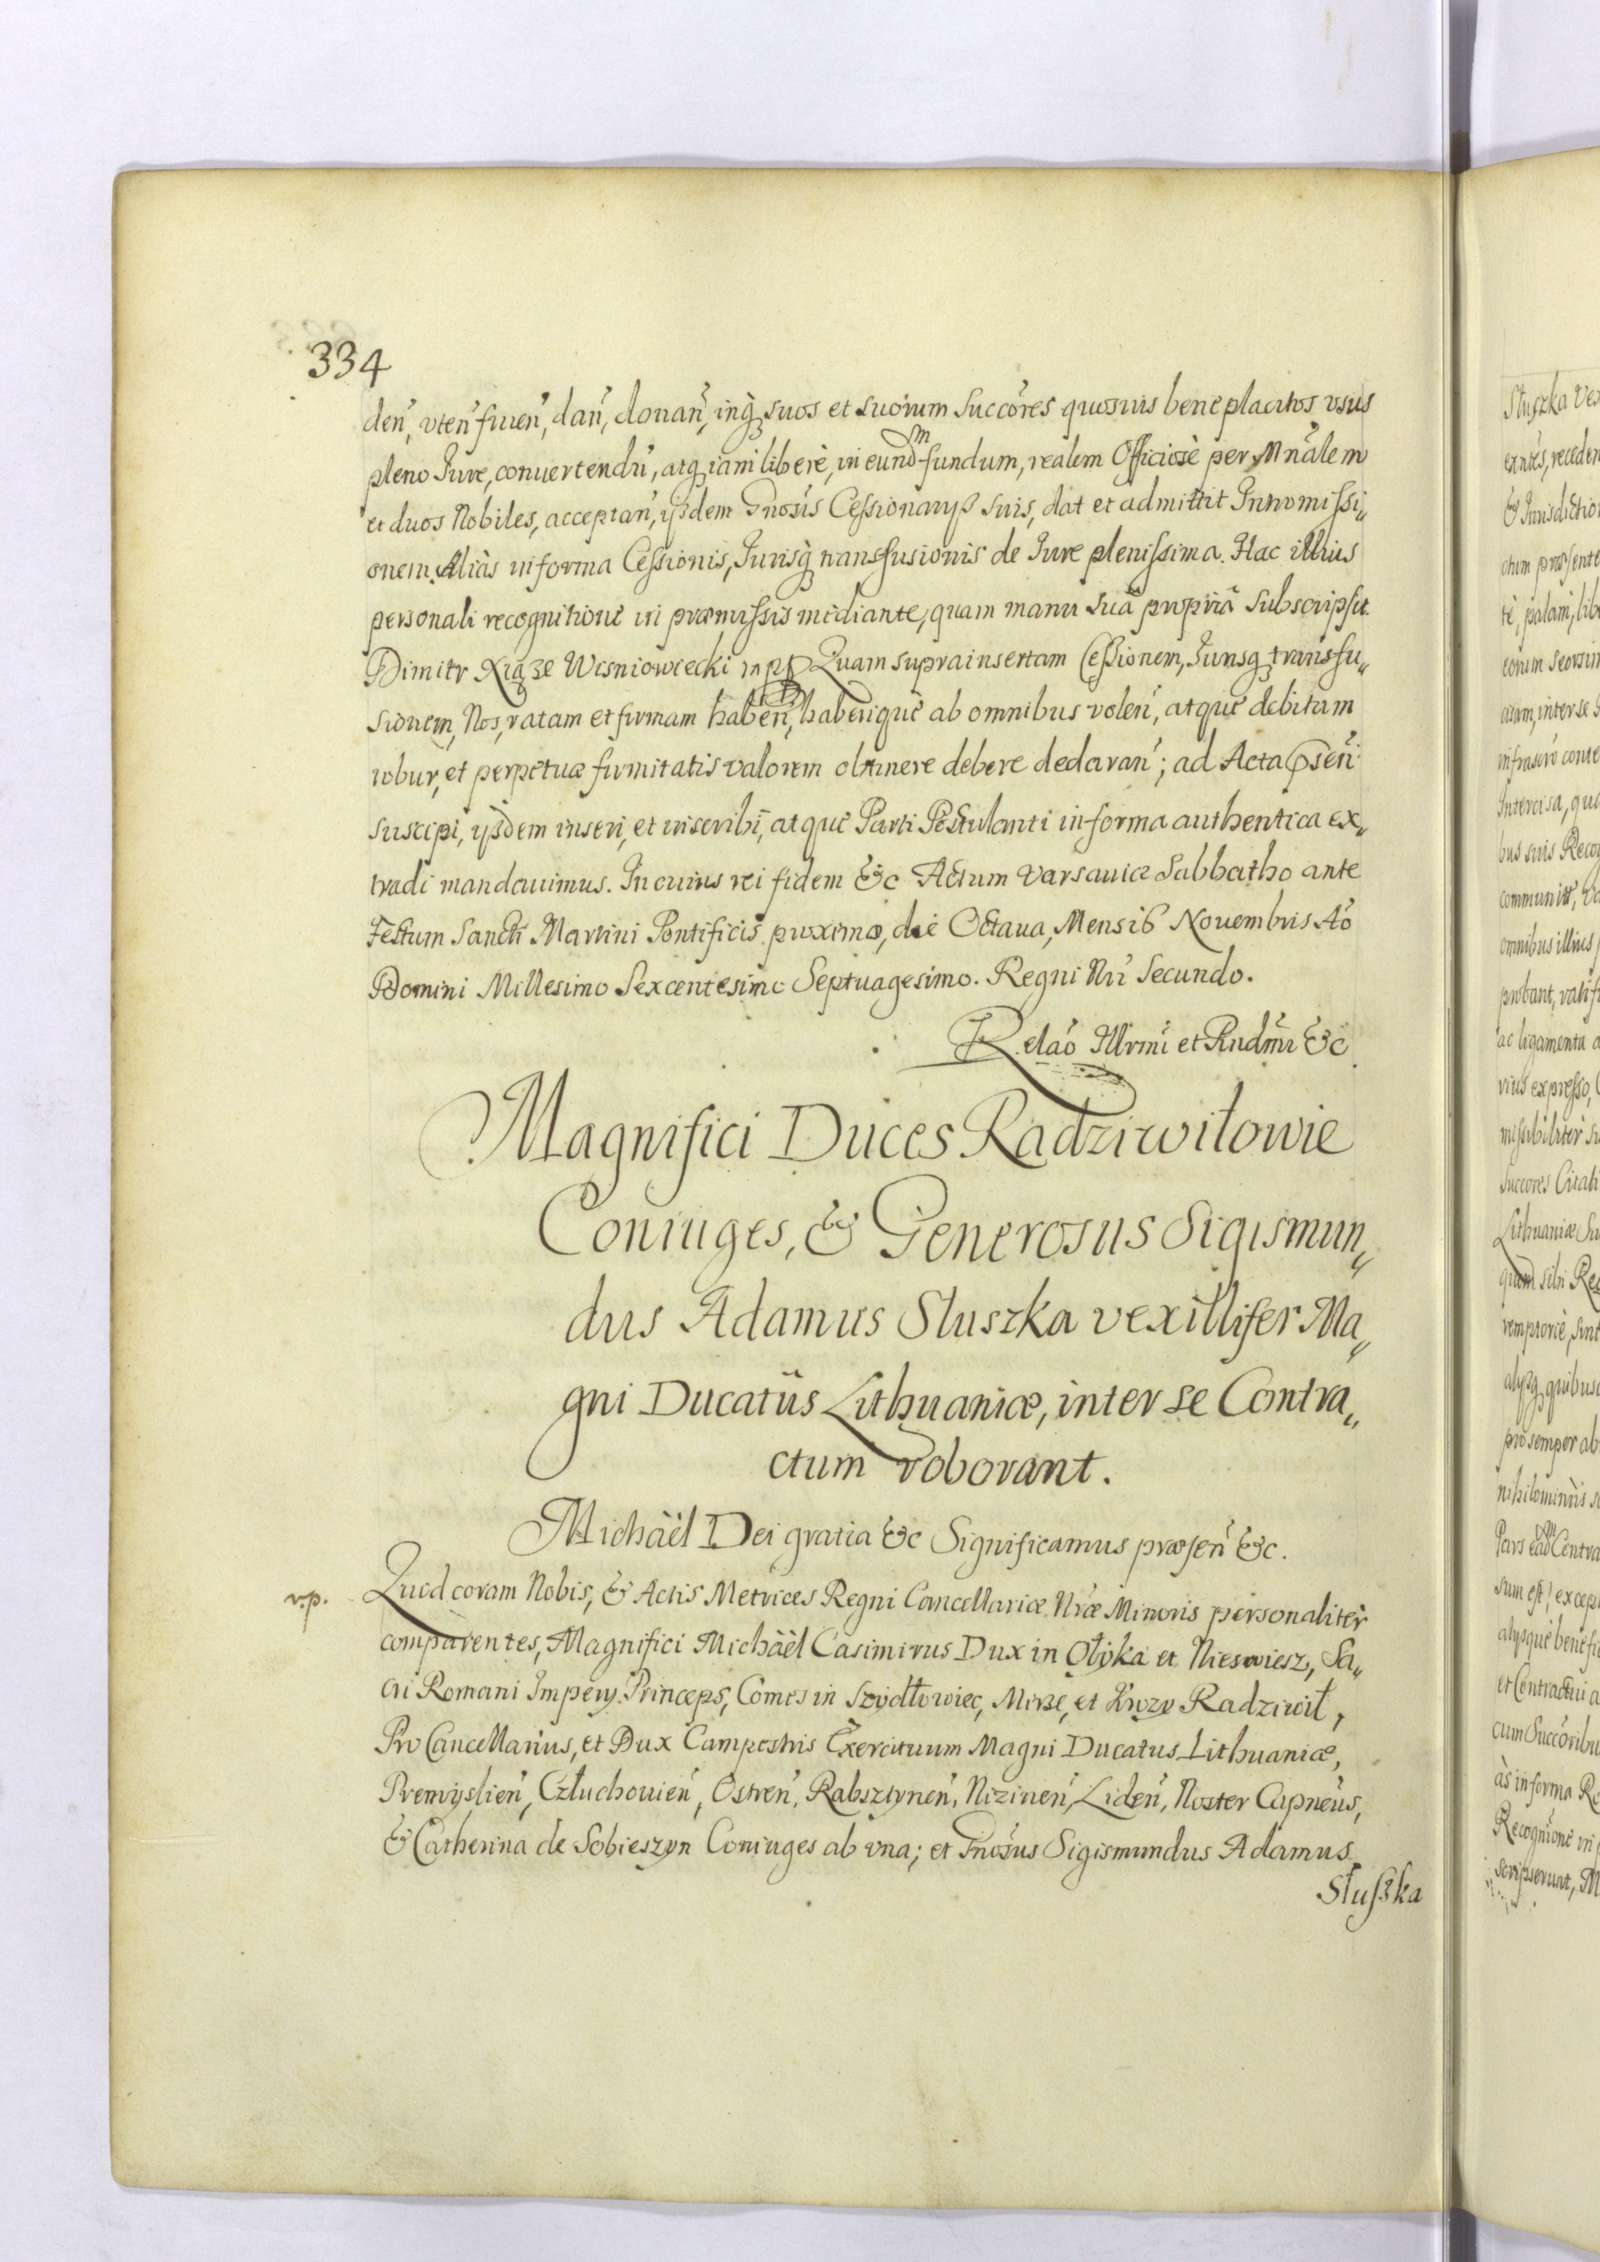 334
den̄, vten̄ fruen̄, dan̄, donan̄, inq̨ suos et suorum Succōres quosuis beneplacitos vsus
pleno Jure, conuertendū, atq̨ iam liberè, in eund̄m fundum, realem Officiosè per Mnālem
et duos Nobiles, acceptan̄, ijsdem Gnosis Cessionarijs suis, dat et admittit Intromissi„
onem. Aliàs in forma Cessionis, Jurisq̨ transfusionis de Jure plenissima. Hac illius
personali recognitione in præmissis mediante, quam manu suâ propriâ subscripsit.
Dimitr Xiąze Wisniowiecki mpp Quam suprainsertam Cessionem, Jurisq̨ transfu„
sionem, Nos, ratam et firmam haben̄, haberique ab omnibus volen̄, atque debitum
robur, et perpetuæ firmitatis valorem obtinere debere declaran̄; ad Acta pn̄sen̄
suscipi, ijsdem inseri, et inscribi, atque Parti Postulanti in forma authentica ex„
tradi mandauimus. In cuius rei fidem &c Actum Varsauiæ Sabbatho ante
Festum Sancti Martini Pontificis proximo, die Octaua, Mensis Nouembris Aō
Domini Millesimo Sexcentesimo Septuagesimo. Regni Nrī Secundo.
Relaō Illrmi et Rndmi &c
Magnifici Duces Radziwiłowie
Coniuges, & Generosus Sigismun„
dus Adamus Słuszka vexillifer Ma„
gni Ducatûs Lithuaniæ, inter se Contra„
ctum roborant.
Michäël Dei gratia &c Significamus præsen̄ &c.
v.p. Quod coram Nobis, & Actis Metrices Regni Cancellariæ Nræ Minoris personaliter
comparentes, Magnifici Michäël Casimirus Dux in Ołyka et Nieswiesz, Sa„
cri Romani Imperij Princeps, Comes in Szydłowiec, Mirze, et Krozy Radziwił,
Pro Cancellarius, et Dux Campestris Exercituum Magni Ducatus Lithuaniæ,
Premyslien̄, Człuchouien̄, Ostren̄, Rabsztynen̄, Nizinen̄, Liden̄, Noster Capneūs,
& Catherina de Sobieszyn Coniuges ab vna; et Gnosus Sigismundus Adamus
Słuszka